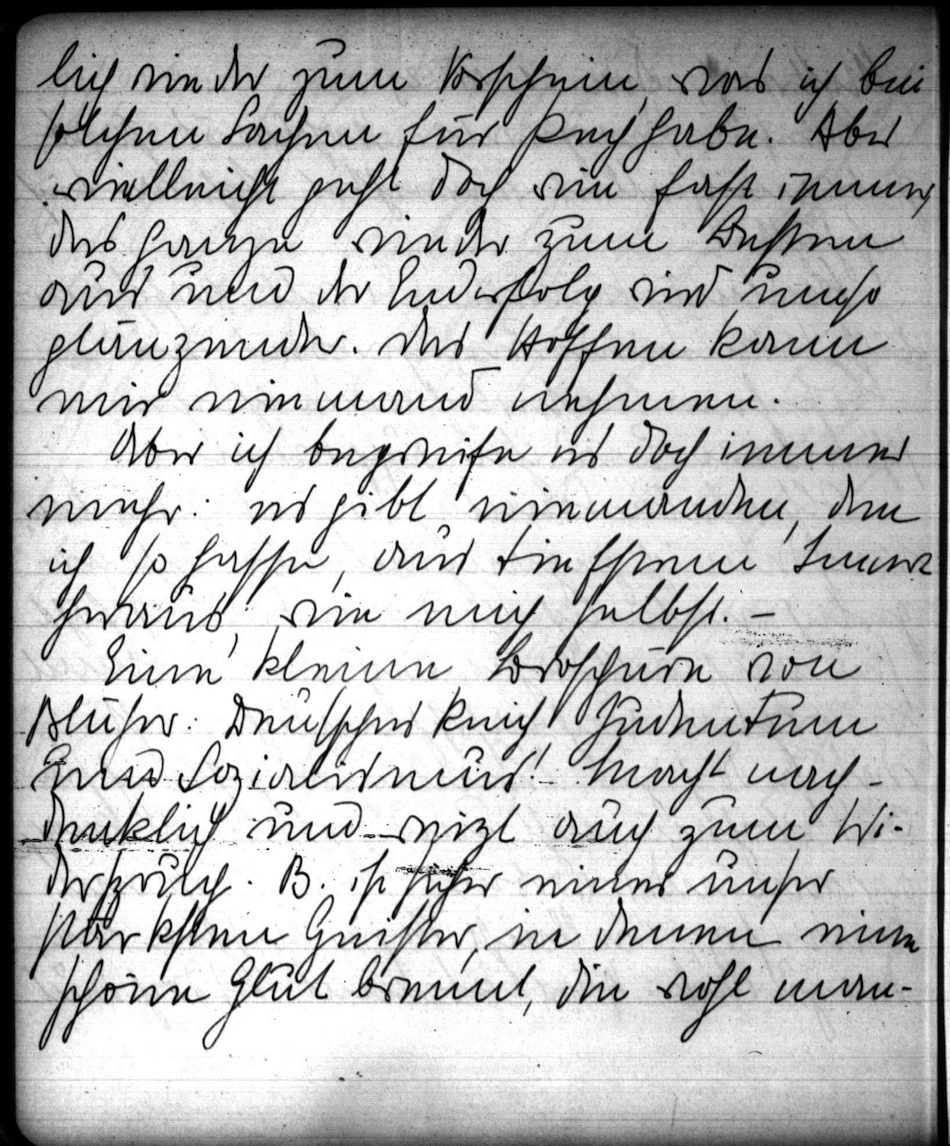 lich wieder zum Vorschein, was ich bei
solchen Sachen für Pech habe. Aber
vielleicht geht doch wie fast immer,
das ganze wieder zum Besten
aus und der Enderfolg wird umso
glänzender. Das Hoffen kann
mir niemand nehmen.
Aber ich begreife es doch immer
mehr: es gibt niemanden, den
ich so hasse, aus tiefstem Innern
heraus, wie mich selbst. –
Eine kleine Broschüre von
Blüher: Deutsches Reich Judentum
und Sozialismus! Macht nach-
denklich und reizt auch zum Wi-
derspruch. B. ist sicher einer unser
stärksten Geister, in denen eine
schöne Glut brennt, die wohl man-